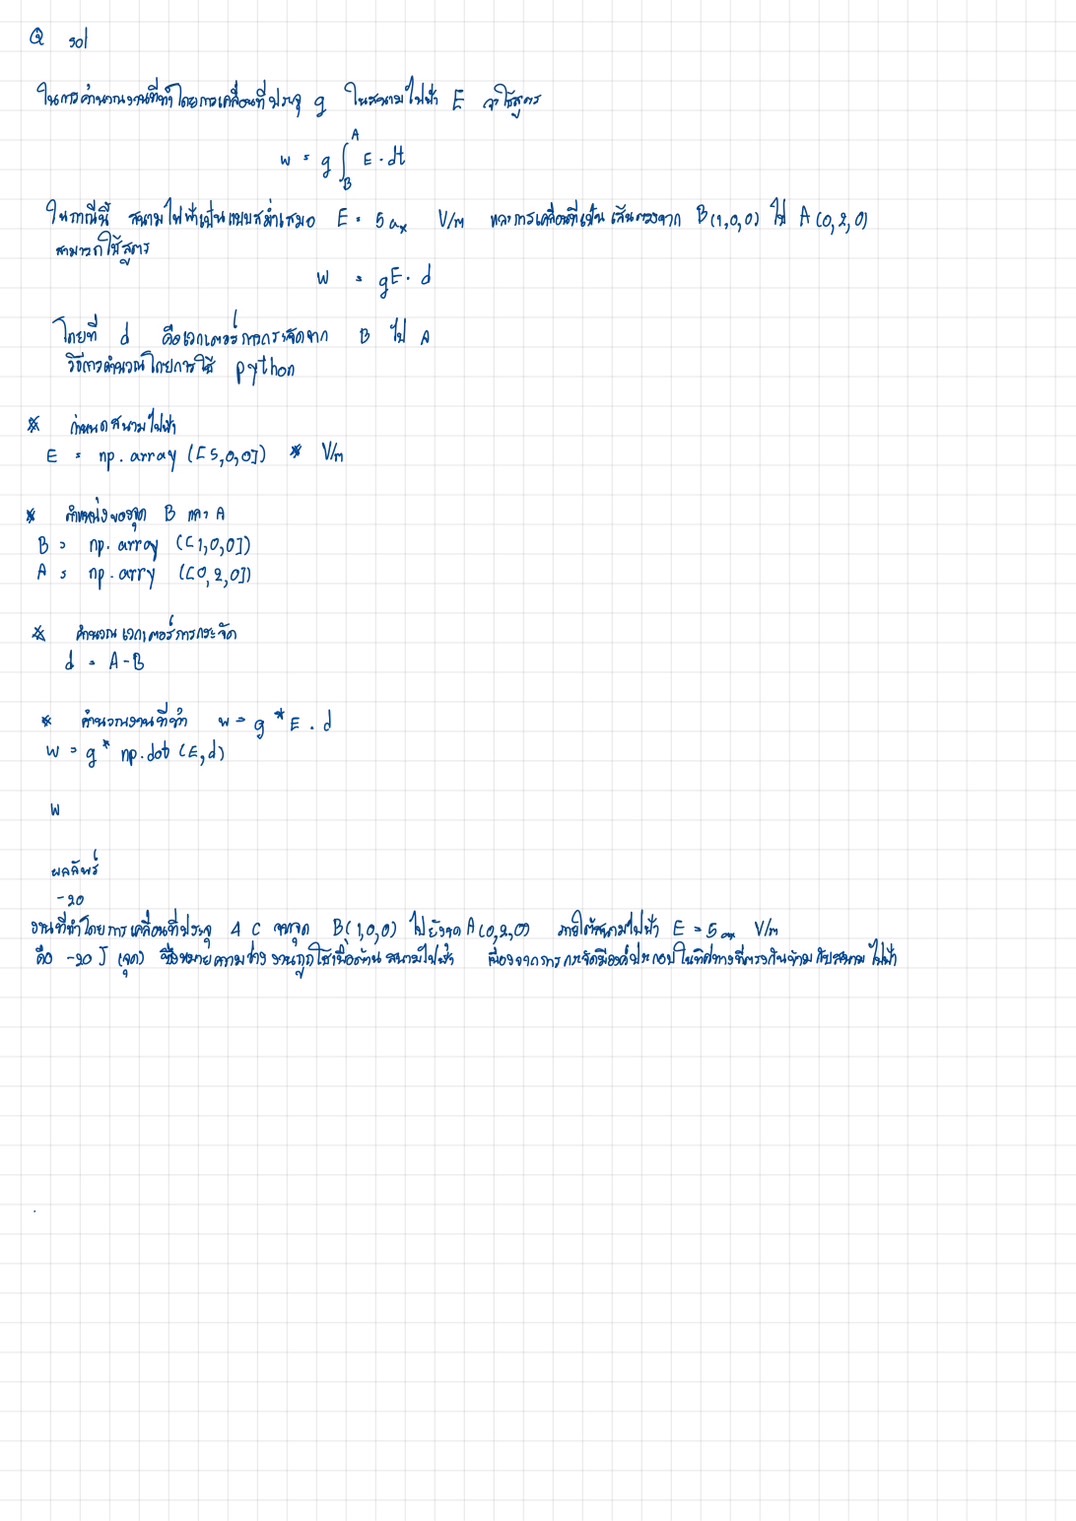 Q sol
ในการคำนวณงานที่ทำโดยการเคลื่อนที่ประจุ q ในสนามไฟฟ้า E จะใช้สูตร
w = q ∫_B^A E · dt
ในกรณีนี้ สนามไฟฟ้าเป็นแบบสม่ำเสมอ E = 5 ax V/m และการเคลื่อนที่เป็น เส้นตรงจาก B(1,0,0) ไป A(0,2,0)
สามารถใช้สูตร
W = qE · d
โดยที่ d คือเวกเตอร์การกระจัดจาก B ไป A
วิธีการคำนวณโดยการใช้ python
* กำหนดสนามไฟฟ้า
E = np.array([5,0,0]) * V/m
* ตำแหน่งของจุด B และ A
B = np.array ([1,0,0])
A = np.arry ([0,2,0])
* คำนวณ เวกเตอร์การกระจัด
d = A-B
* คำนวณงานที่ทำ w = q * E . d
w = q * np.dot (E,d)
w
ผลลัพธ์
-20
งานที่ทำโดยการ เคลื่อนที่ประจุ 4 C จากจุด B(1,0,0) ไปยังจุด A(0,2,0) ภายใต้สนามไฟฟ้า E = 5 ax V/m
คือ -20 J (จูล) ซึ่งหมายความว่า งานถูกใช้เพื่อต้าน สนามไฟฟ้า เนื่องจากการ กระจัดมีองค์ประกอบ ในทิศทางที่ตรงกันข้าม กับสนาม ไฟฟ้า